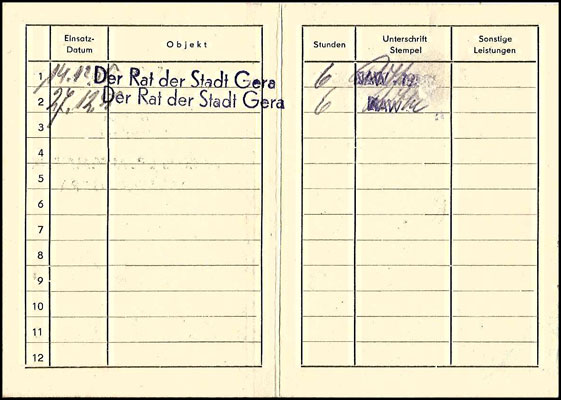 Einsatz-Datum Objekt Stunden Unterschrift Stempel Sonstige Leistungen
1 14.12. Der Rat der Stadt Gera 6 NAW
2 27.12. Der Rat der Stadt Gera 6 NAW
3
4
5
6
7
8
9
10
11
12